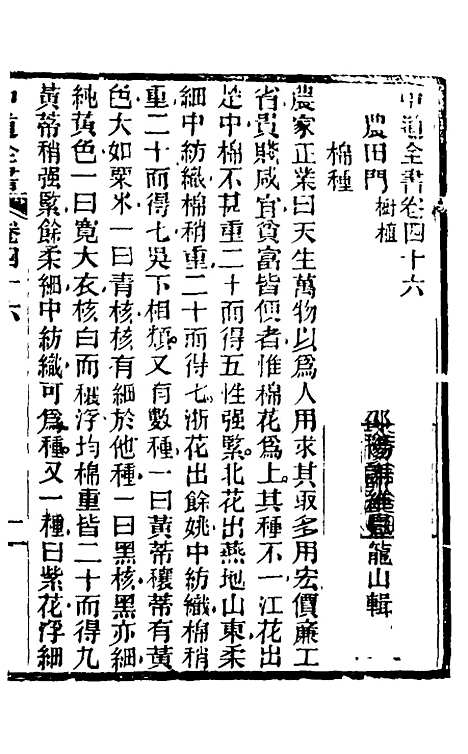 中道全書卷四十六
農田門 樹植
邵陽謝維嶽龍山輯
棉種
農家正業曰天生萬物以爲人用求其取多用宏價廉工
省貴賤咸宜貧富皆便者惟棉花爲上其種不一江花出
楚中棉不甚重二十而得五性强緊北花出燕地山東柔
細中紡織棉稍重二十而得七浙花出餘姚中紡織棉稍
重二十而得七吳下相類又有數種一曰黃蒂穰蒂有黃
色大如粟米一曰青核核有細於他種一曰黑核黑亦細
純黃色一曰寬大衣核白而穰浮均棉重皆二十而得九
黃蒂稍强緊餘柔細中紡織可爲種又一種曰紫花浮細
中道全書 卷四十六 一